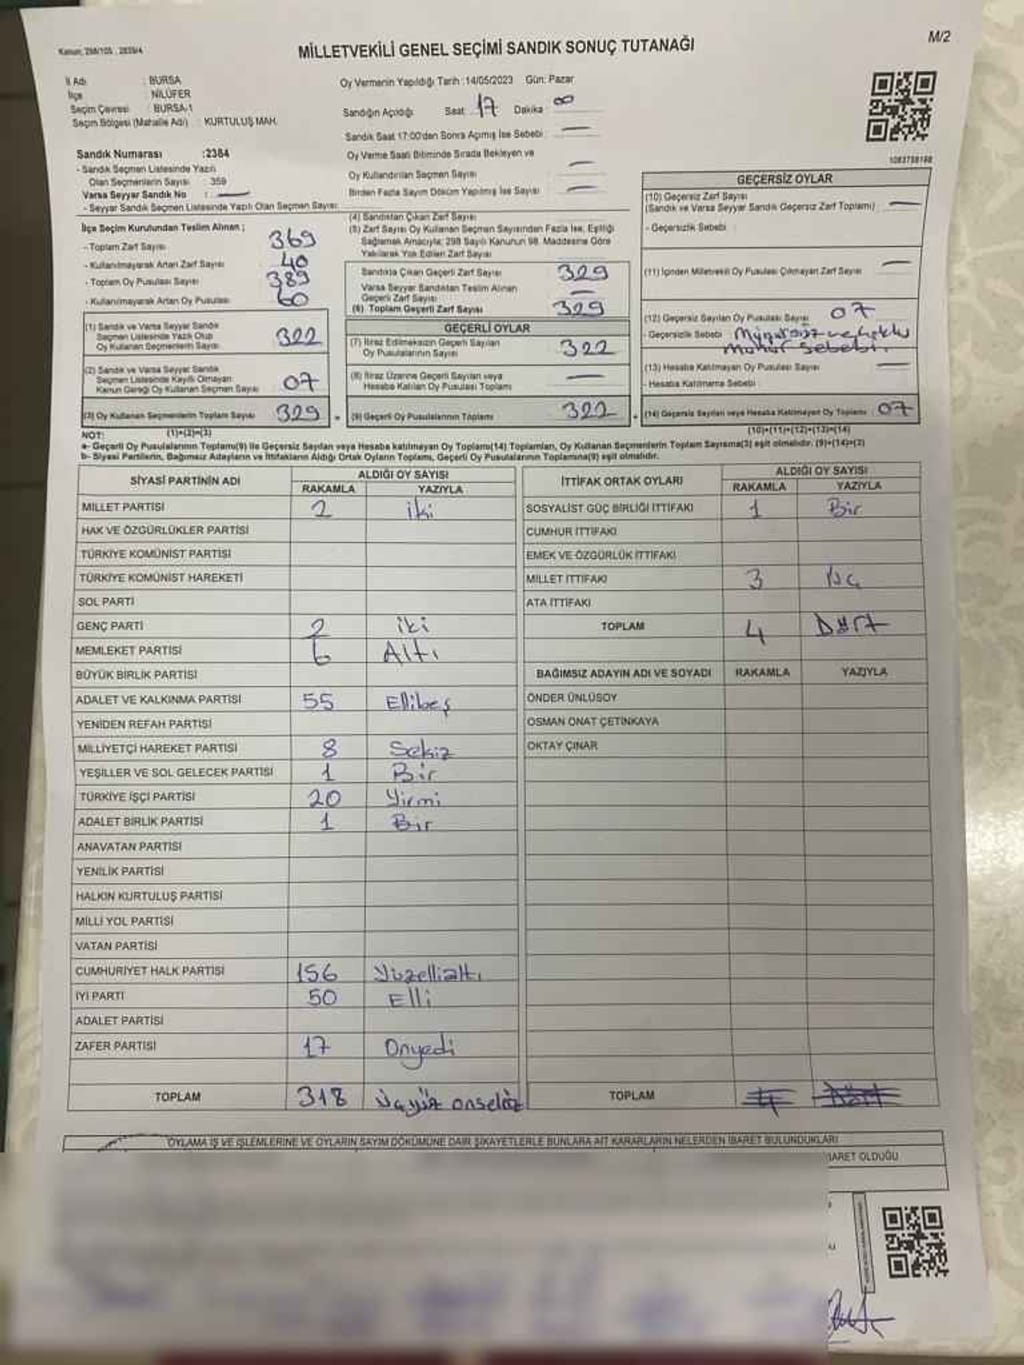 Kanun; 298/105 , 2839/4
M/2
MİLLETVEKİLİ GENEL SEÇİMİ SANDIK SONUÇ TUTANAĞI
İl Adı : BURSA
İlçe : NİLÜFER
Seçim Çevresi : BURSA-1
Seçim Bölgesi (Mahalle Adı) : KURTULUŞ MAH.
Oy Vermenin Yapıldığı Tarih :14/05/2023 Gün: Pazar
Sandığın Açıldığı Saat 17 Dakika 00
Sandık Saat 17:00'den Sonra Açılmış İse Sebebi : —
Oy Verme Saati Bitiminde Sırada Bekleyen ve
Oy Kullandırılan Seçmen Sayısı —
Birden Fazla Sayım Döküm Yapılmış İse Sayısı —
1083758198
Sandık Numarası :2384
- Sandık Seçmen Listesinde Yazılı
Olan Seçmenlerin Sayısı : 359
Varsa Seyyar Sandık No : —
- Seyyar Sandık Seçmen Listesinde Yazılı Olan Seçmen Sayısı:
İlçe Seçim Kurulundan Teslim Alınan ;
- Toplam Zarf Sayısı 369
- Kullanılmayarak Artan Zarf Sayısı 40
- Toplam Oy Pusulası Sayısı 389
- Kullanılmayarak Artan Oy Pusulası 60
(1) Sandık ve Varsa Seyyar Sandık
Seçmen Listesinde Yazılı Olup
Oy Kullanan Seçmenlerin Sayısı 322
(2) Sandık ve Varsa Seyyar Sandık
Seçmen Listesinde Kayıtlı Olmayan
Kanun Gereği Oy Kullanan Seçmen Sayısı 07
(3) Oy Kullanan Seçmenlerin Toplam Sayısı 329
(1)+(2)=(3)
(4) Sandıktan Çıkan Zarf Sayısı
(5) Zarf Sayısı Oy Kullanan Seçmen Sayısından Fazla İse, Eşitliği
Sağlamak Amacıyla; 298 Sayılı Kanunun 98. Maddesine Göre
Yakılarak Yok Edilen Zarf Sayısı
Sandıkta Çıkan Geçerli Zarf Sayısı 329
Varsa Seyyar Sandıktan Teslim Alınan
Geçerli Zarf Sayısı —
(6) Toplam Geçerli Zarf Sayısı 329
GEÇERLİ OYLAR
(7) İtiraz Edilmeksizin Geçerli Sayılan
Oy Pusulalarının Sayısı 322
(8) İtiraz Üzerine Geçerli Sayılan veya
Hesaba Katılan Oy Pusulası Toplamı —
= (9) Geçerli Oy Pusulalarının Toplamı 322
GEÇERSİZ OYLAR
(10) Geçersiz Zarf Sayısı
(Sandık ve Varsa Seyyar Sandık Geçersiz Zarf Toplamı) : —
- Geçersizlik Sebebi :
(11) İçinden Milletvekili Oy Pusulası Çıkmayan Zarf Sayısı —
(12) Geçersiz Sayılan Oy Pusulası Sayısı 07
- Geçersizlik Sebebi
mühür sebebi.
(13) Hesaba Katılmayan Oy Pusulası Sayısı —
- Hesaba Katılmama Sebebi
+ (14) Geçersiz Sayılan veya Hesaba Katılmayan Oy Toplamı : 07
(10)+(11)+(12)+(13)=(14)
NOT:
a- Geçerli Oy Pusulalarının Toplamı(9) ile Geçersiz Sayılan veya Hesaba katılmayan Oy Toplamı(14) Toplamları, Oy Kullanan Seçmenlerin Toplam Sayısına(3) eşit olmalıdır. (9)+(14)=(3)
b- Siyasi Partilerin, Bağımsız Adayların ve İttifakların Aldığı Ortak Oyların Toplamı, Geçerli Oy Pusulalarının Toplamına(9) eşit olmalıdır.
SİYASİ PARTİNİN ADI ALDIĞI OY SAYISI
RAKAMLA YAZIYLA
MİLLET PARTİSİ 2 iki
HAK VE ÖZGÜRLÜKLER PARTİSİ
TÜRKİYE KOMÜNİST PARTİSİ
TÜRKİYE KOMÜNİST HAREKETİ
SOL PARTİ
GENÇ PARTİ 2 iki
MEMLEKET PARTİSİ 6 Altı
BÜYÜK BİRLİK PARTİSİ
ADALET VE KALKINMA PARTİSİ 55 Ellibeş
YENİDEN REFAH PARTİSİ
MİLLİYETÇİ HAREKET PARTİSİ 8 Sekiz
YEŞİLLER VE SOL GELECEK PARTİSİ 1 Bir
TÜRKİYE İŞÇİ PARTİSİ 20 Yirmi
ADALET BİRLİK PARTİSİ 1 Bir
ANAVATAN PARTİSİ
YENİLİK PARTİSİ
HALKIN KURTULUŞ PARTİSİ
MİLLİ YOL PARTİSİ
VATAN PARTİSİ
CUMHURİYET HALK PARTİSİ 156 Yüzellialtı
İYİ PARTİ 50 Elli
ADALET PARTİSİ
ZAFER PARTİSİ 17 Onyedi
TOPLAM 318 üçyüz onsekiz
İTTİFAK ORTAK OYLARI ALDIĞI OY SAYISI
RAKAMLA YAZIYLA
SOSYALİST GÜÇ BİRLİĞİ İTTİFAKI 1 Bir
CUMHUR İTTİFAKI
EMEK VE ÖZGÜRLÜK İTTİFAKI
MİLLET İTTİFAKI 3 Üç
ATA İTTİFAKI
TOPLAM 4 Dört
BAĞIMSIZ ADAYIN ADI VE SOYADI RAKAMLA YAZIYLA
ÖNDER ÜNLÜSOY
OSMAN ONAT ÇETİNKAYA
OKTAY ÇINAR
TOPLAM 4 Dört
OYLAMA İŞ VE İŞLEMLERİNE VE OYLARIN SAYIM DÖKÜMÜNE DAİR ŞİKAYETLERLE BUNLARA AİT KARARLARIN NELERDEN İBARET BULUNDUKLARI
İBARET OLDUĞU